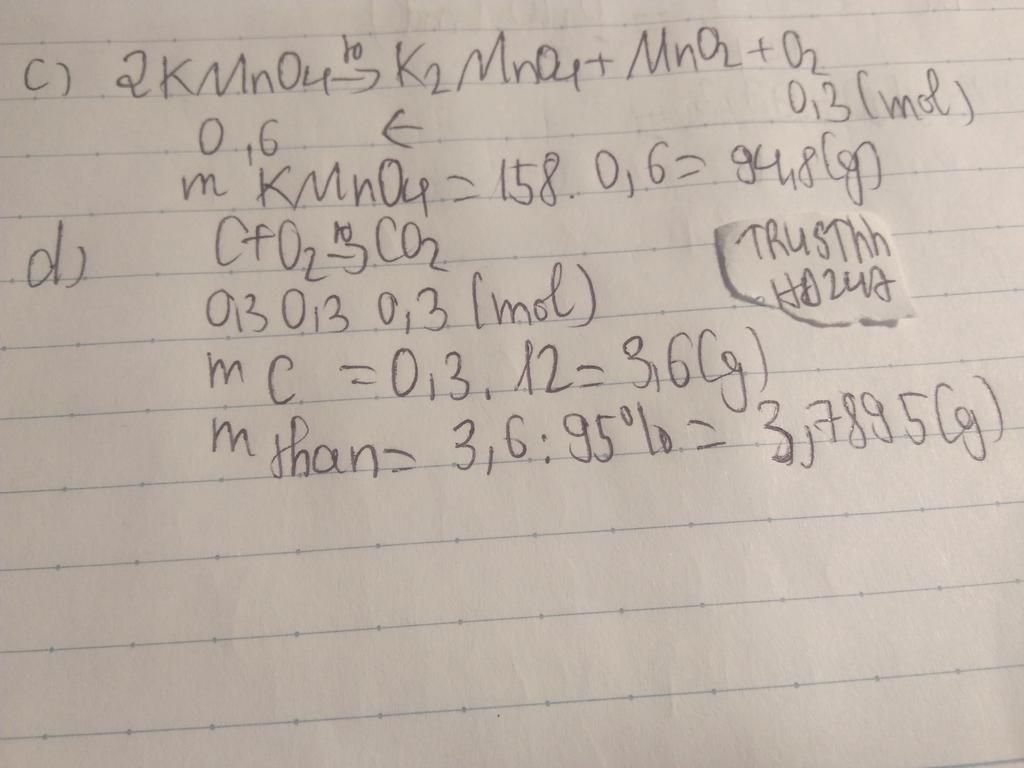 c) 2KMnO4 t0→ K2MnO4 + MnO2 + O2
0,6 ← 0,3 (mol)
m KMnO4 = 158. 0,6 = 94,8(g)
d) C+O2 t0→ CO2
0,3 0,3 0,3 (mol)
m C = 0,3. 12 = 3,6(g)
m than = 3,6 : 95% = 3,7895(g)
TRUSThh